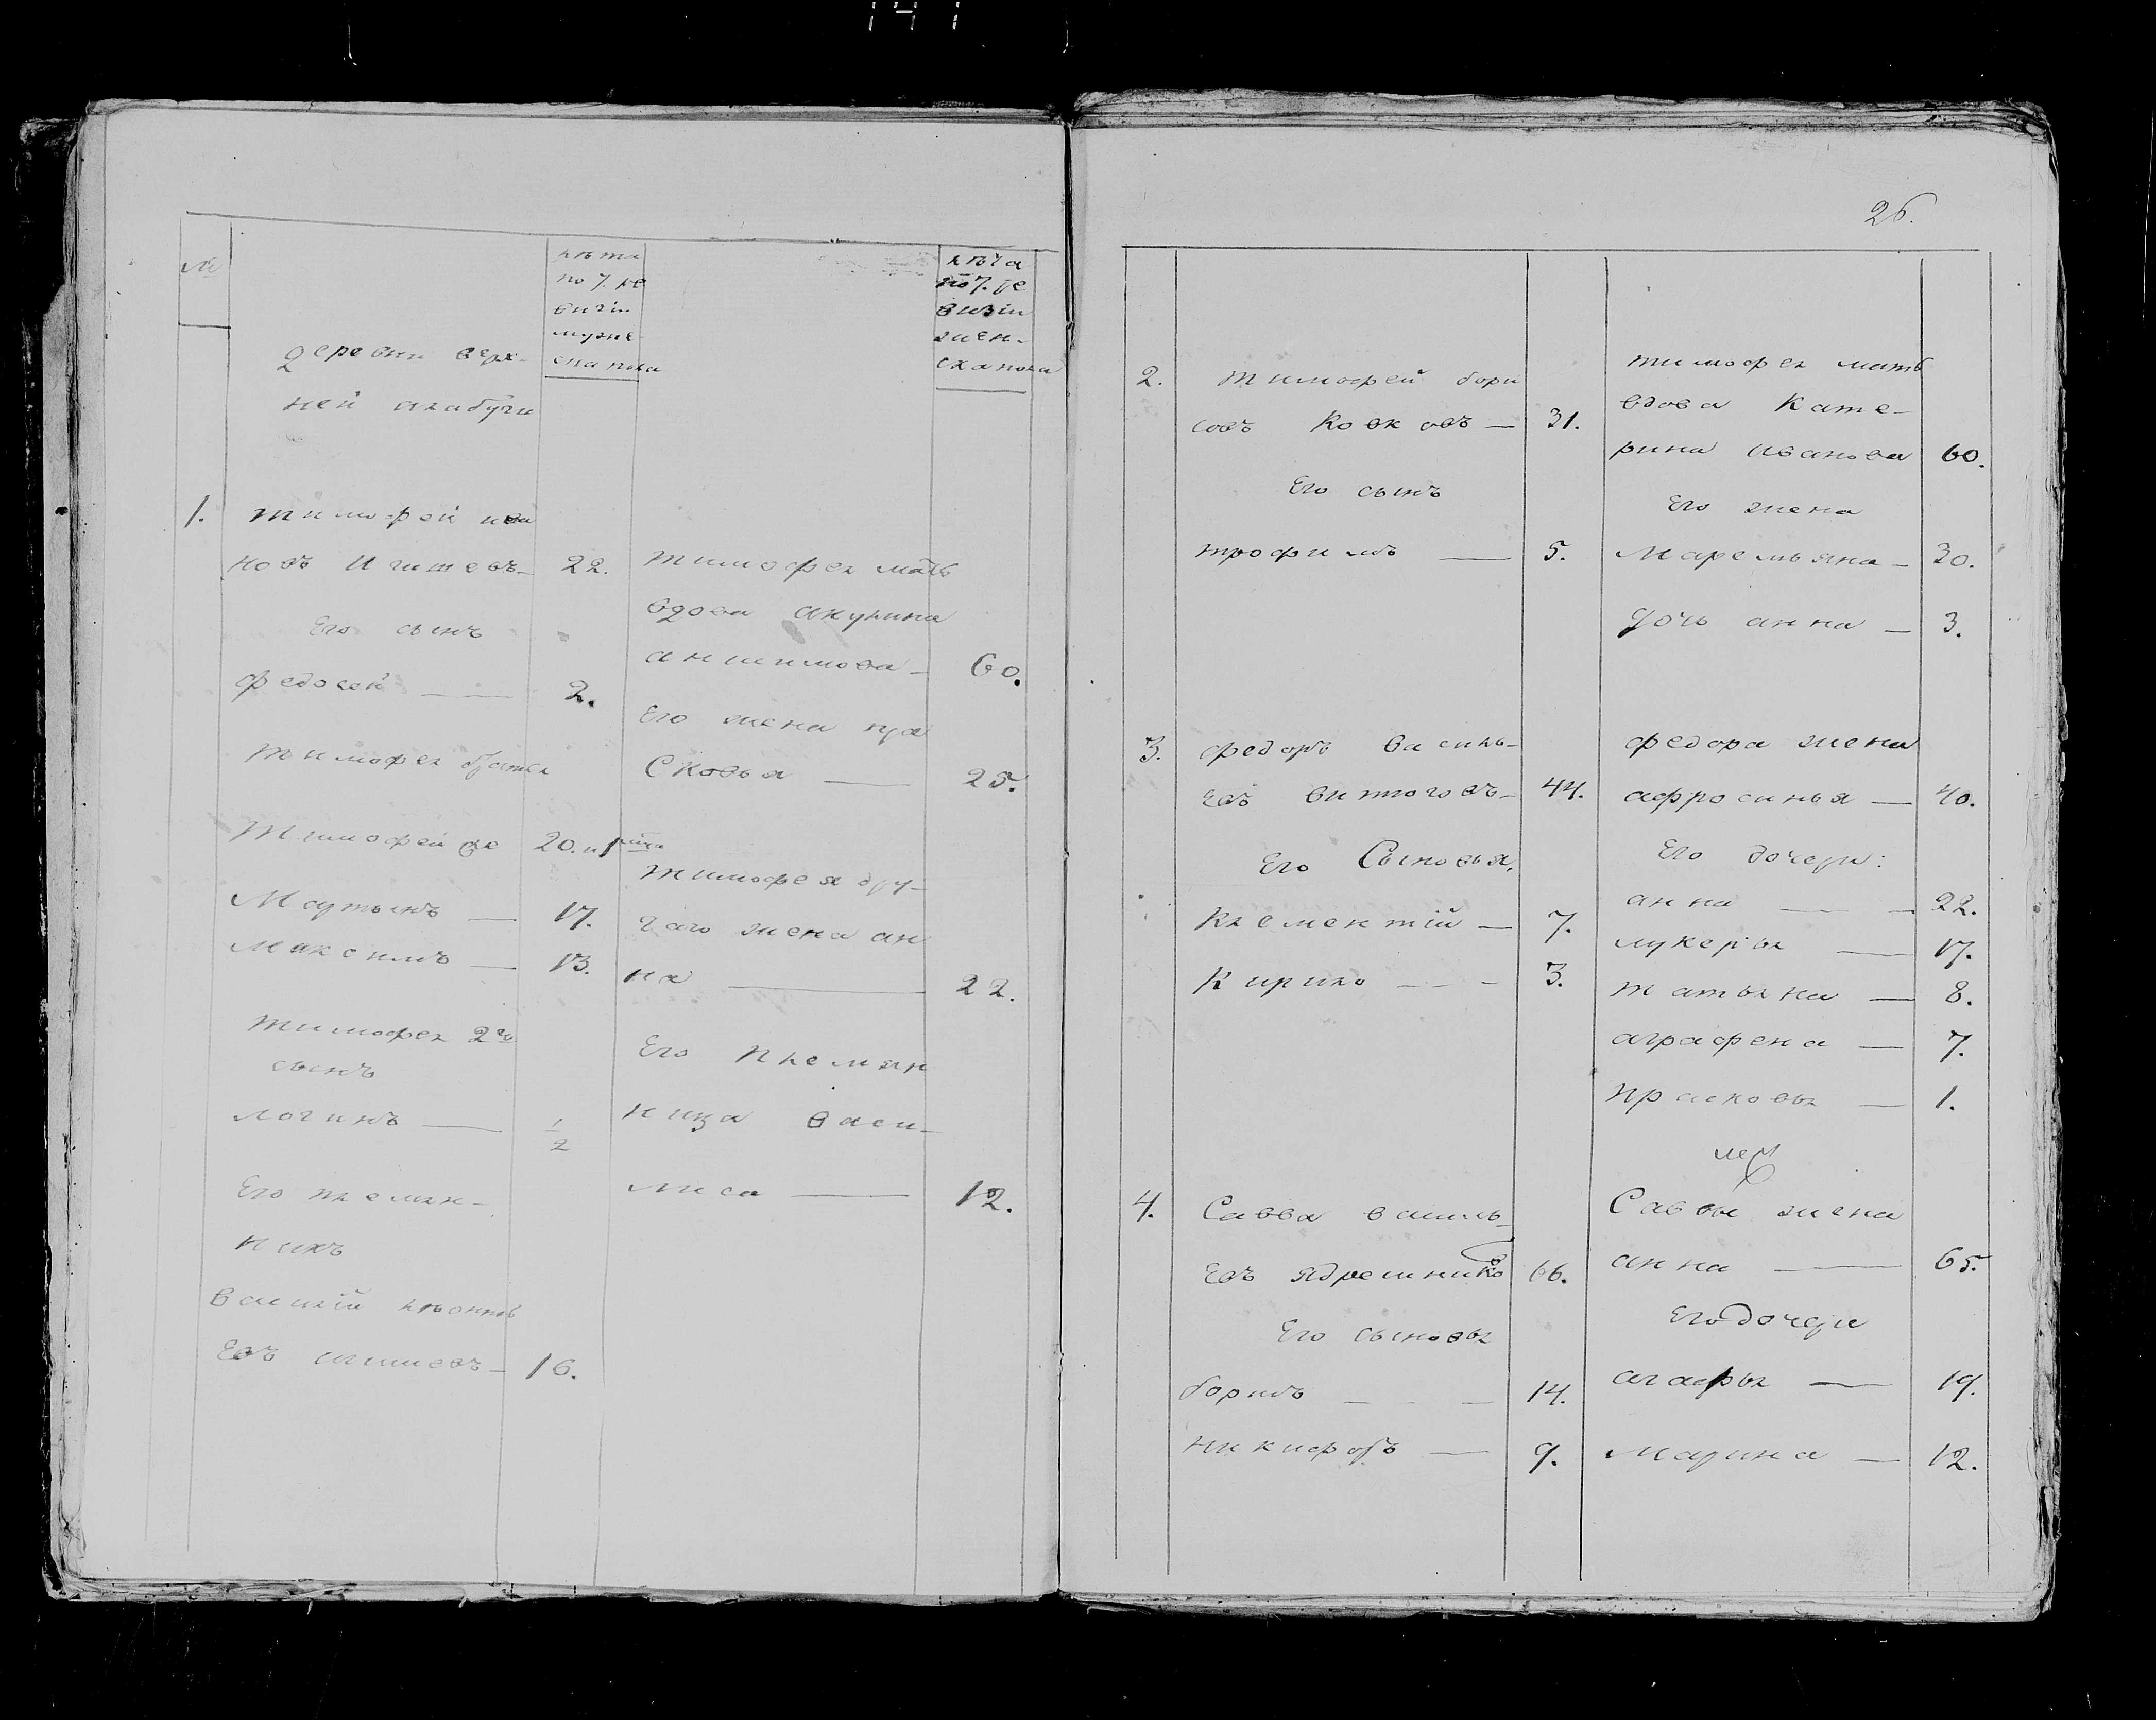 141
№
лѣта
по 7. ре
визіи
муже
ска пола
лѣта
по 7. ре
визіи
жен-
ска пола
деревни верх-
ней алабуги
1. тимофей ива
новъ Игишевъ 22.
Его сынъ
федосей — 2.
тимофея братья
Тимофей же 20. и 1
Мартынъ — 17.
Максимъ — 13.
тимофея 2го
сынъ
логинъ — 1/2
Его племян-
никъ
василій леонть
Евъ игишевъ — 16.
тимофея мать
вдова акулина
анисимова — 60.
Его жена пра
Сковья — 25.
тимофея дру-
гаго жена ан
на — 22.
Его племян
ница васи-
лиса — 12.
26.
2. тимофей бори
совъ Ковковъ — 31.
Его сынъ
трофимъ — 5.
тимофея мать
вдова Кате-
рина иванова 60.
Его жена
Маремьяна — 30.
дочь анна — 3.
3. федоръ василь-
Евъ витоговъ — 44.
Его Сыновья,
Клементій — 7.
Кирило — 3.
федора жена
афросинья — 40.
Его дочери:
анна — 22.
лукерья — 17.
татьяна — 8.
аграфена — 7.
прасковья — 1.
4. Савва василь-
Евъ ядрешнико
въ 66.
Его сыновья
борисъ — 14.
никифоръ — 9.
Саввы жена
анна — 65.
Его дочери
агафья — 19.
Марина — 12.